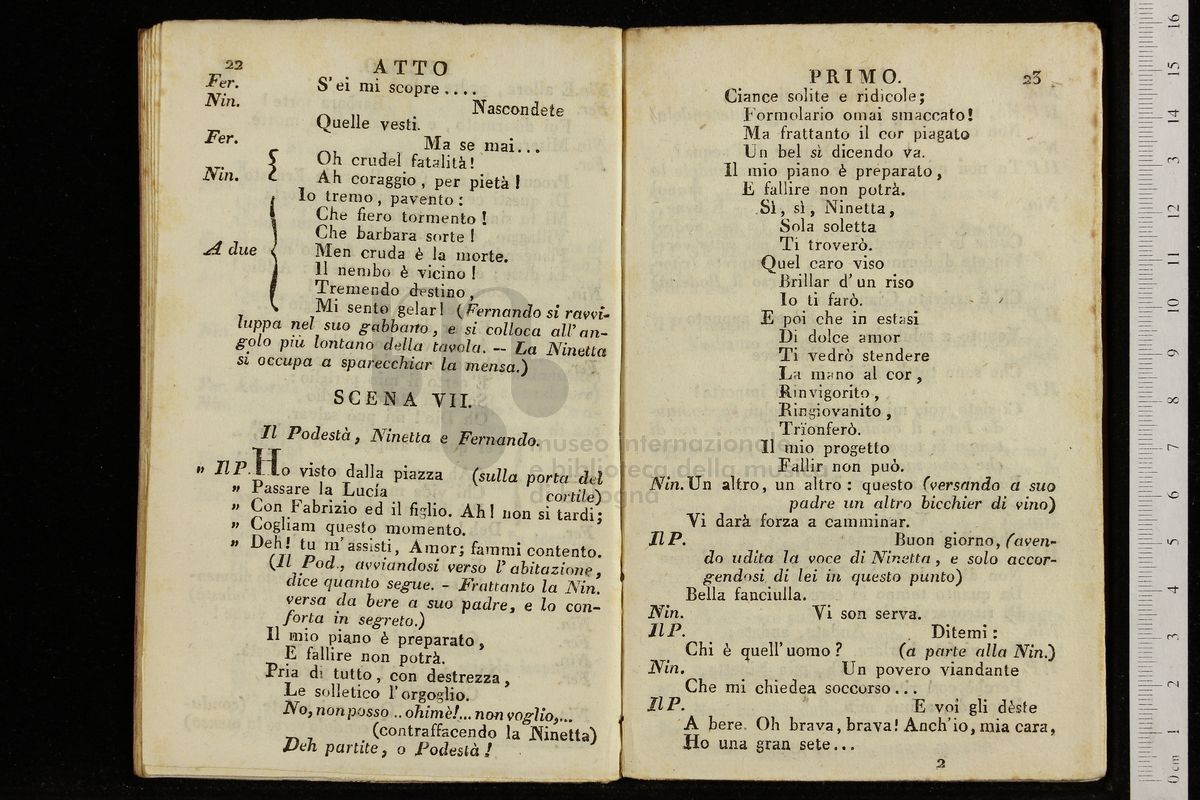 22
ATTO
Fer. S'ei mi scopre....
Nin. Nascondete
Quelle vesti.
Fer. Ma se mai...
Oh crudel fatalità!
Nin. Ah coraggio, per pietà!
Io tremo, pavento:
Che fiero tormento!
Che barbara sorte!
A due Men cruda è la morte.
Il nembo è vicino!
Tremendo destino,
Mi sento gelar! (Fernando si ravvi-
luppa nel suo gabbano, e si colloca all'an-
golo più lontano della tavola. -- La Ninetta
si occupa a sparecchiar la mensa.)
SCENA VII.
Il Podestà, Ninetta e Fernando.
" Il P. Ho visto dalla piazza (sulla porta del
" Passare la Lucía cortile)
" Con Fabrizio ed il figlio. Ah! non si tardi;
" Cogliam questo momento.
" Deh! tu m'assisti, Amor; fammi contento.
(Il Pod., avviandosi verso l'abitazione,
dice quanto segue. - Frattanto la Nin.
versa da bere a suo padre, e lo con-
forta in segreto.)
Il mio piano è preparato,
E fallire non potrà.
Pria di tutto, con destrezza,
Le solletico l'orgoglio.
No, non posso .. ohimè!... non voglio,...
(contraffacendo la Ninetta)
Deh partite, o Podestà!
PRIMO.
23
Ciance solite e ridicole;
Formolario omai smaccato!
Ma frattanto il cor piagato
Un bel sì dicendo va.
Il mio piano è preparato,
E fallire non potrà.
Sì, sì, Ninetta,
Sola soletta
Ti troverò.
Quel caro viso
Brillar d'un riso
Io ti farò.
E poi che in estasi
Di dolce amor
Ti vedrò stendere
La mano al cor,
Rinvigorito,
Ringiovanito,
Trïonferò.
Il mio progetto
Fallir non può.
Nin. Un altro, un altro: questo (versando a suo
padre un altro bicchier di vino)
Vi darà forza a camminar.
Il P. Buon giorno, (aven-
do udita la voce di Ninetta, e solo accor-
gendosi di lei in questo punto)
Bella fanciulla.
Nin. Vi son serva.
Il P. Ditemi:
Chi è quell'uomo? (a parte alla Nin.)
Nin. Un povero viandante
Che mi chiedea soccorso...
Il P. E voi gli dèste
A bere. Oh brava, brava! Anch'io, mia cara,
Ho una gran sete...
2
museo internazionale
e biblioteca della musica
di bologna
0 cm 1 2 3 4 5 6 7 8 9 10 11 12 13 14 15 16